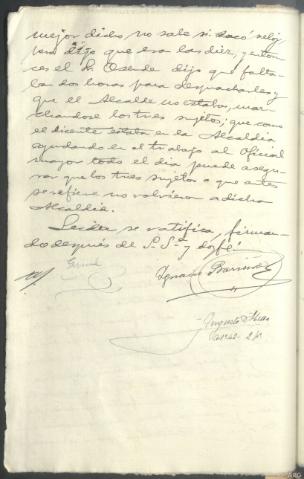 mejor dicho no sabe si sacó reloj
pero dijo que eran las diez, y enton-
ces el Sr. Osende dijo que falta-
ba dos horas para despacharles y
que el Alcalde no estaba, mar
chandose los tres sujetos; que como
el dicente estaba en la Alcaldia
ayudando en el trabajo al Oficial
mayor todo el dia puede asegu-
rar que los tres sujetos a que antes
se refiere no volvieron a dicha
Alcaldia.
Leida se ratifica, firman-
do despues de S.Sª y doy fé
Ignacio